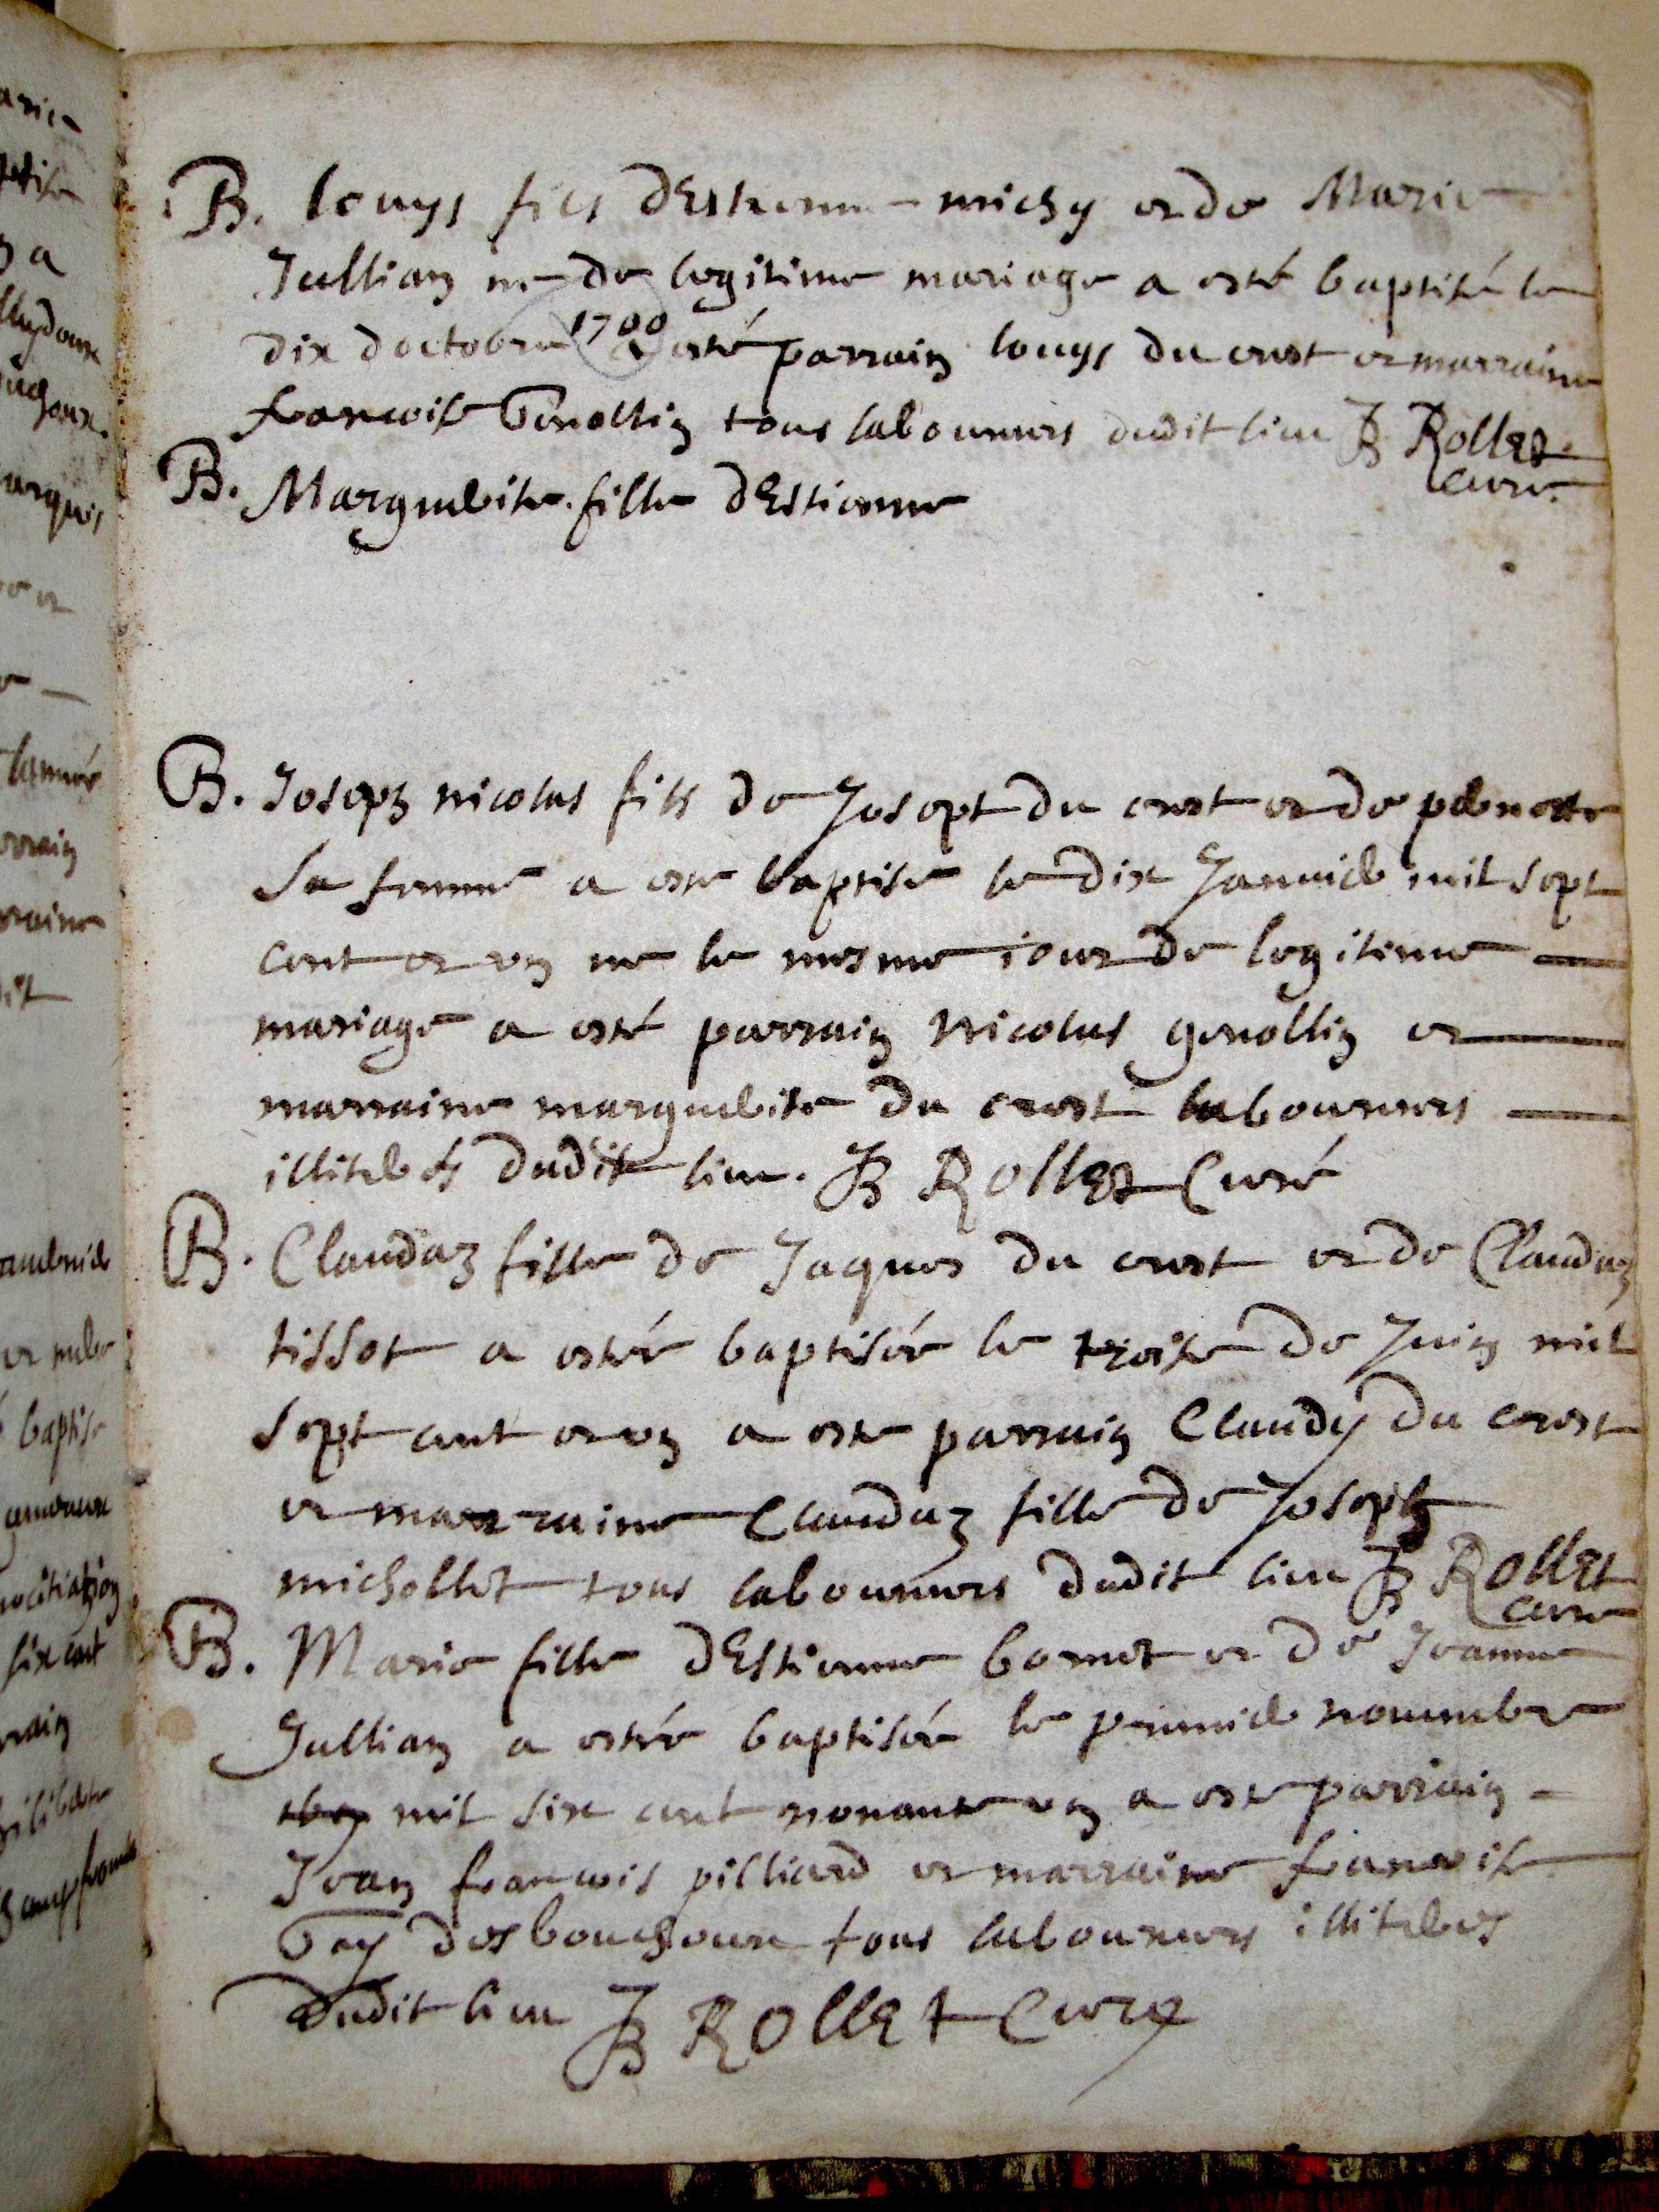 B. louys fils dEstienne michy et de Marie
Jullian ne de legitime mariage a esté baptisé le
dix doctobre 1700 a esté parrain louys du crest et marraine
francoise Genollin tous laboureurs dudit lieu JB Rollet
curé.
B. Marguerite fille dEstienne
B. Joseph nicolas fils de Josept du crest et de pernette
sa femme a este baptise le dix Janvier mil sept
cent et un ne le mesme iour de legitime
mariage a esté parrain nicolas genollin et
marraine marguerite du crest laboureurs
illiterés dudit lieu. JB Rollet Curé
B. Claudaz fille de Jaques du crest et de Claudaz
tissot a estée baptisée le treise de Juin mil
sept cent et un a este parrain Claudy du crest
et marraine Claudaz fille de Joseph
michollet tous laboureurs dudit lieu JB Rollet
curé
B. Marie fille dEstienne bornet et de Jeanne
Jullian a estée baptisée le premier nouembre
mil six cent nonante un a este parrain
Jean francois pilliard et marraine francoise
des bouchoux tous laboureurs illiterés
dudit lieu JB Rollet Curé